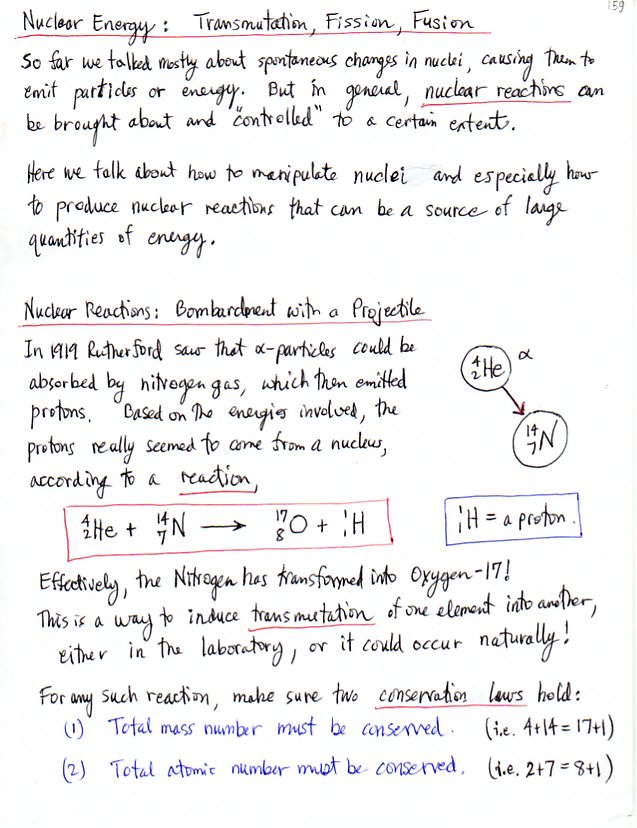 159
Nuclear Energy: Transmutation, Fission, Fusion
So far we talked mostly about spontaneous changes in nuclei, causing them to
emit particles or energy. But in general, nuclear reactions can
be brought about and "controlled" to a certain extent.
Here we talk about how to manipulate nuclei and especially how
to produce nuclear reactions that can be a source of large
quantities of energy.
Nuclear Reactions: Bombardment with a Projectile
In 1919 Rutherford saw that α-particles could be
absorbed by nitrogen gas, which then emitted
protons. Based on the energies involved, the
protons really seemed to come from a nucleus,
according to a reaction,
⁴₂He α
¹⁴₇N
⁴₂He + ¹⁴₇N → ¹⁷₈O + ¹₁H
¹₁H = a proton.
Effectively, the Nitrogen has transformed into Oxygen-17!
This is a way to induce transmutation of one element into another,
either in the laboratory, or it could occur naturally!
For any such reaction, make sure two conservation laws hold:
(1) Total mass number must be conserved. (i.e. 4+14=17+1)
(2) Total atomic number must be conserved. (i.e. 2+7=8+1)